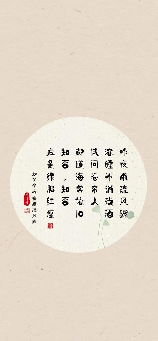 昨夜雨疏风骤
浓睡不消残酒
试问卷帘人
却道海棠依旧
知否，知否
应是绿肥红瘦